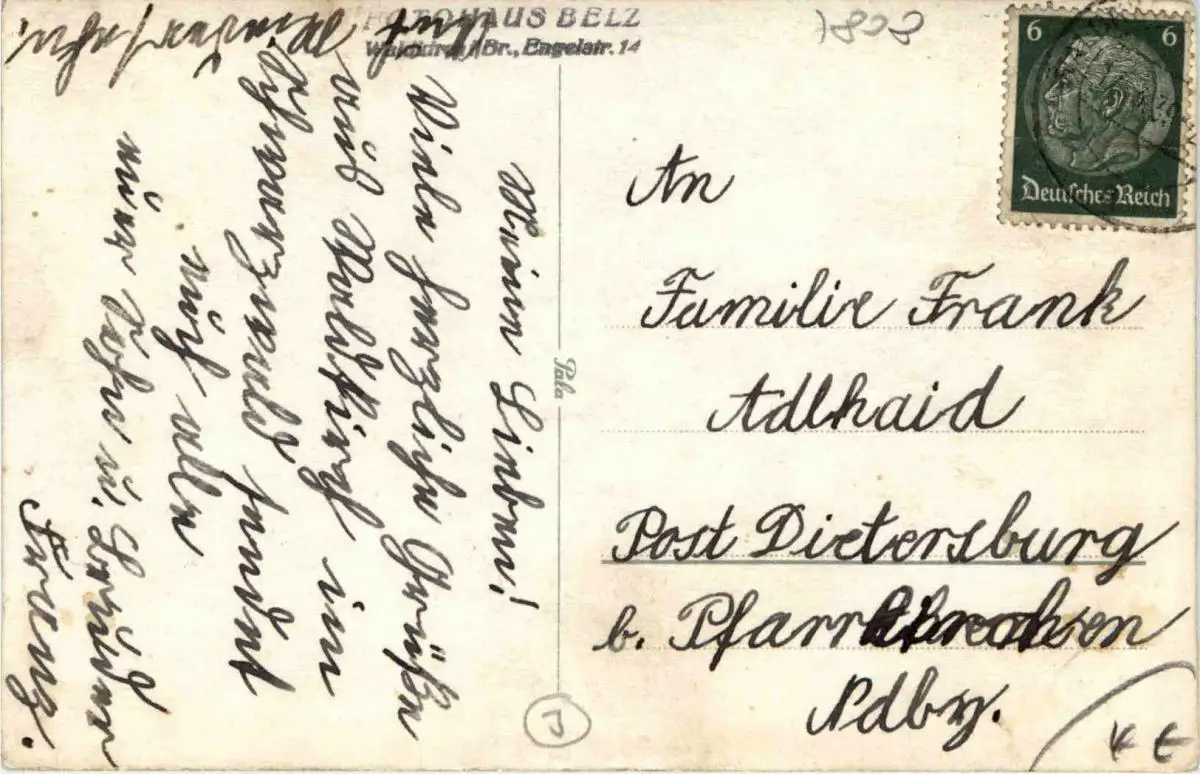 FOTOHAUS BELZ
Waldkirch i Br., Engelstr. 14
6 6
Deutsches Reich
Meine Lieben!
Viele herzliche Grüße
aus Waldkirch im
Schwarzwald sendet
euch allen
euer Sohn u. Bruder
Franz.
Auf
Wiedersehn!
Pala
An
Familie Frank
Adlhaid
Post Dietersburg
b. Pfarrkirchen
Ndby.